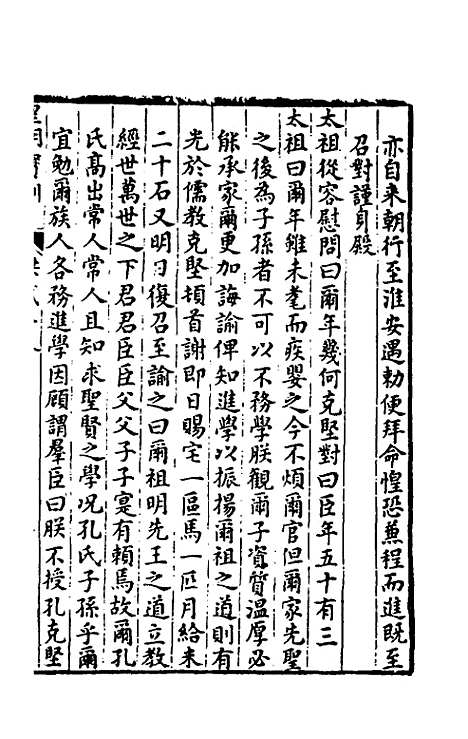 亦自来朝行至淮安遇勅使拜命惶恐兼程而進既至
召對謹身殿
太祖從容慰問曰爾年幾何克堅對曰臣年五十有三
太祖曰爾年雖未耄而疾嬰之今不煩爾官但爾家先聖
之後為子孫者不可以不務學朕觀爾子資質温厚必
能承家爾更加誨諭俾知進學以振揚爾祖之道則有
光於儒教克堅頓首謝即日賜宅一區馬一匹月給米
二十石又明日復召至諭之曰爾祖明先王之道立教
經世萬世之下君君臣臣父父子子寔有賴焉故爾孔
氏高出常人常人且知求聖賢之學况孔氏子孫乎爾
宜勉爾族人各務進學因顧謂羣臣曰朕不授孔克堅